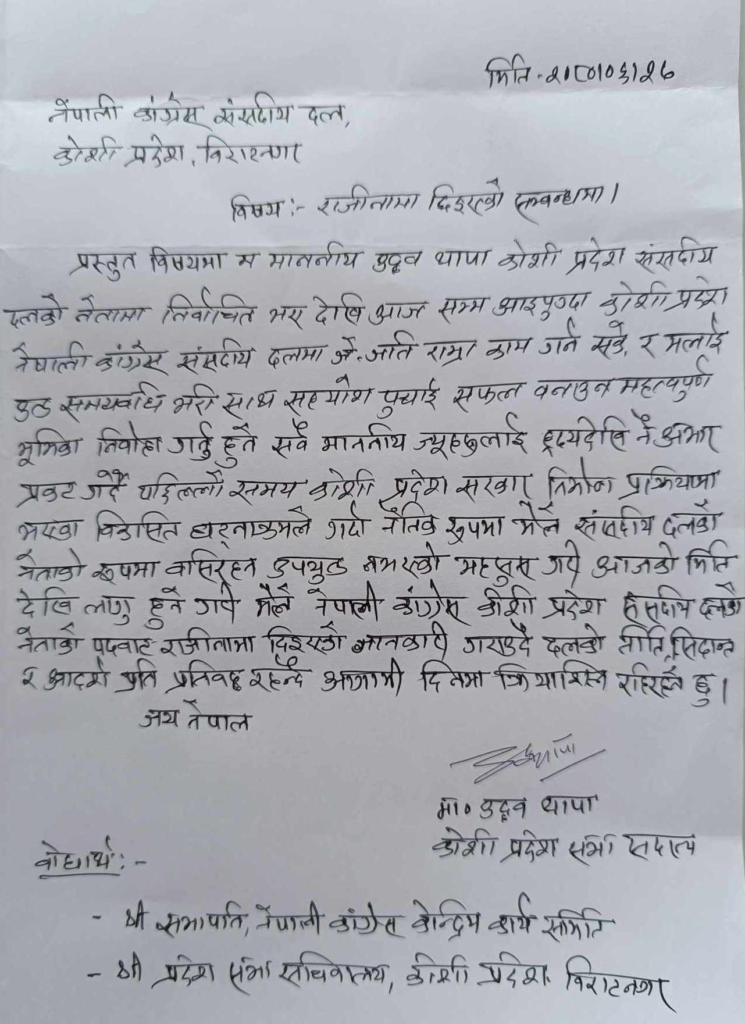 मिति - २०८०।०६।२७
नेपाली कांग्रेस संसदीय दल,
कोशी प्रदेश, विराटनगर
विषय :- राजीनामा दिइएको सम्बन्धमा।
प्रस्तुत विषयमा म माननीय उद्धव थापा कोशी प्रदेश संसदीय
दलको नेतामा निर्वाचित भए देखि आज सम्म आइपुग्दा कोशी प्रदेश
नेपाली कांग्रेस संसदीय दलमा जे-जति राम्रा काम गर्न सकें, र मलाई
उक्त समयावधि भरी साथ सहयोग पुर्‍याई सफल बनाउन महत्वपुर्ण
भूमिका निर्वाह गर्नु हुने सवै माननीय ज्यूहरुलाई ह्रदयदेखि नै आभार
प्रकट गर्दै पछिल्लो समय कोशी प्रदेश सरकार निर्माण प्रक्रियामा
भएका विकसित घटनाक्रमले गर्दा नैतिक रुपमा मैले संसदीय दलको
नेताको रूपमा बसिरहन उपयुक्त नभएको महसुस गरी आजको मिति
देखि लागु हुने गरी मैले नेपाली कांग्रेस कोशी प्रदेश संसदीय दलको
नेताको पदबाट राजीनामा दिइएको जानकारी गराउदै दलको नीति, सिद्धान्त
र आदर्श प्रति प्रतिवद्ध रहन्दै आगामी दिनमा क्रियाशिल रहिरहने छु।
जय नेपाल
मा० उद्धव थापा
कोशी प्रदेश सभा सदस्य
वोधार्थ :-
- श्री सभापति, नेपाली कांग्रेस केन्द्रिय कार्य समिति
- श्री प्रदेश सभा सचिवालय, कोशी प्रदेश विराटनगर